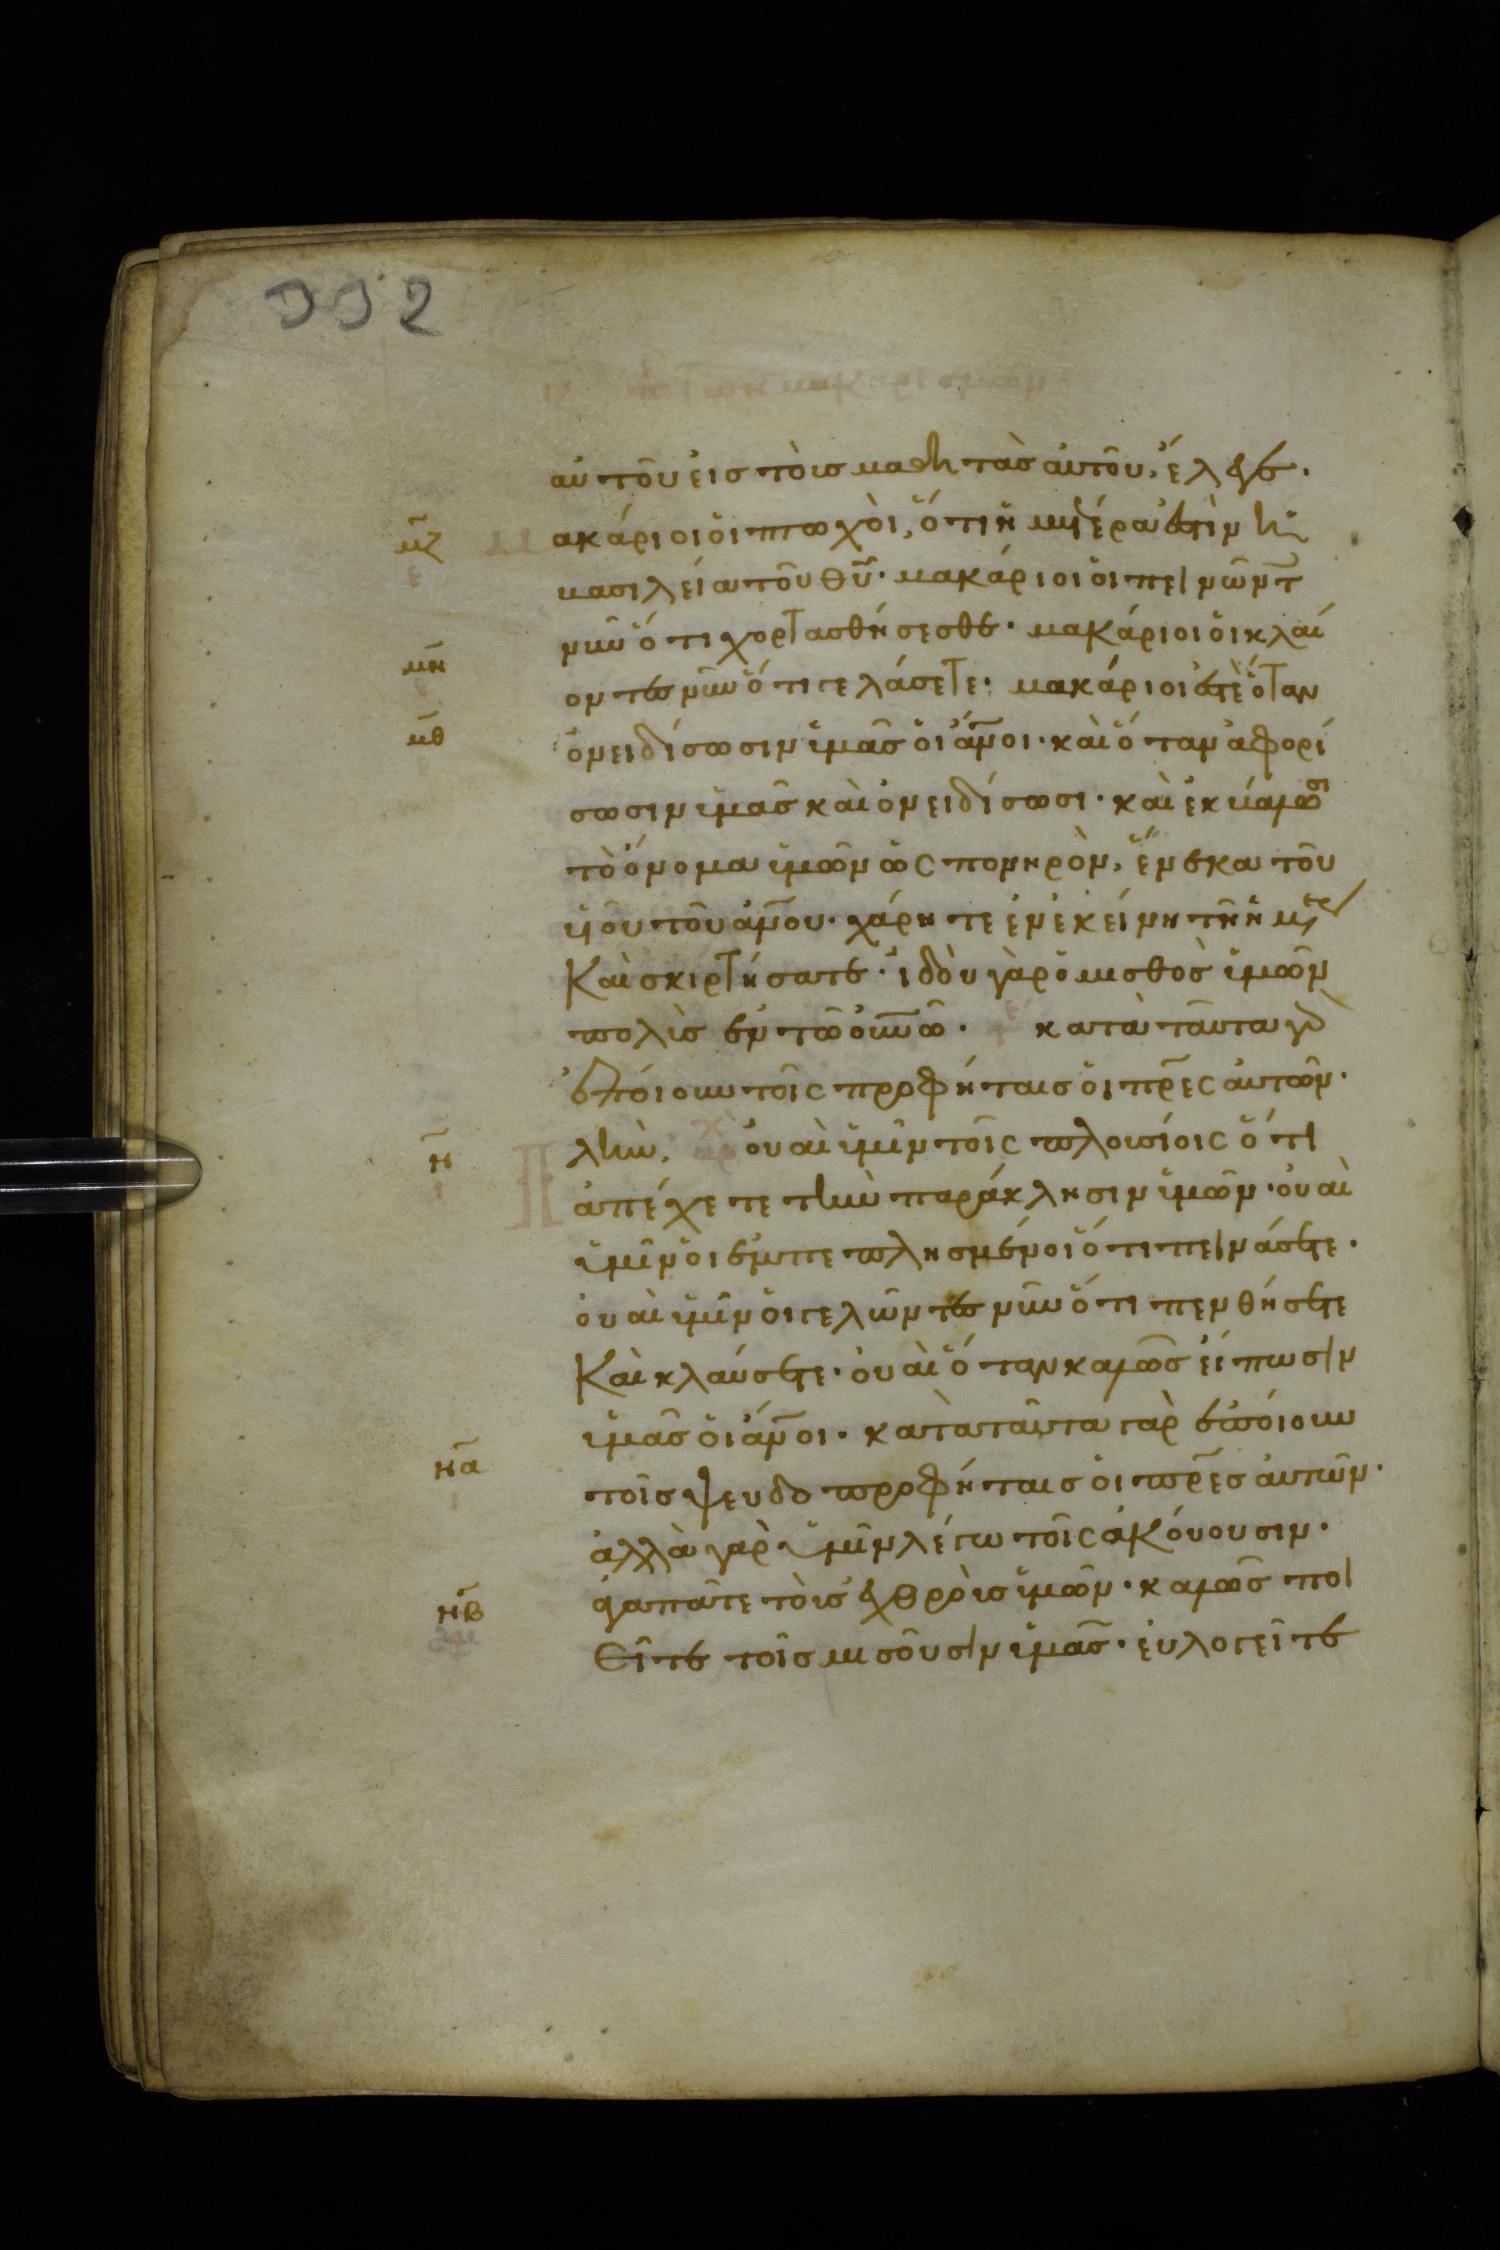 992
π τῶν μακαρισμῶν
αὐτοῦ εἰς τοὺς μαθητὰς αὐτοῦ, ἔλεγε·
μζ Μακάριοι οἱ πτωχοὶ, ὅτι ἡμετέρα ἐστὶν ἡ
βασιλεία τοῦ θῦ· μακάριοι οἱ πεινῶντ
νῦν ὅτι χορτασθήσεσθε· μακάριοι οἱ κλαί
μη οντες νῦν ὅτι γελάσετε· μακάριοι ἐστὲ ὅταν
μθ ὀνειδίσωσιν ὑμᾶς οἱ ἄνοι· καὶ ὅταν ἀφορί
σωσιν ὑμᾶς καὶ ὀνειδίσωσι· καὶ ἐκβάλωσι
τὸ ὄνομα ὑμῶν ὡς πονηρὸν, ἕνεκα τοῦ
υἱοῦ τοῦ ἀνου· χάρητε ἐν ἐκείνη τῆ ἡμέ
Καὶ σκιρτήσατε· ἰδοὺ γὰρ ὁ μισθὸς ὑμῶν
πολὺς ἐν τῶ οὐνῶ· κατὰ ταῦτα γὰρ
ἐποίουν τοῖς προφήταις οἱ πρες αὐτῶν·
ν Πλὴν, οὐαὶ ὑμῖν τοῖς πλουσίοις ὅτι
ἀπέχετε τὴν παράκλησιν ὑμῶν· οὐαὶ
ὑμῖν οἱ ἐμπεπλησμένοι ὅτι πεινάσετε·
οὐαὶ ὑμῖν οἱ γελῶντες νῦν ὅτι πενθήσετε
Καὶ κλαύσετε· οὐαὶ ὅταν καλῶς εἴπωσιν
ὑμᾶς οἱ ἄνοι· κατὰ ταῦτα γὰρ ἐποίουν
να τοῖς ψευδοπροφήταις οἱ πρες αὐτῶν·
ἀλλὰ γὰρ ὑμῖν λέγω τοῖς ἀκούουσιν·
νβ ἀγαπᾶτε τοὺς ἐχθροὺς ὑμῶν· καλῶς ποι
εῖτε τοῖς μισοῦσιν ὑμᾶς· εὐλογεῖτε